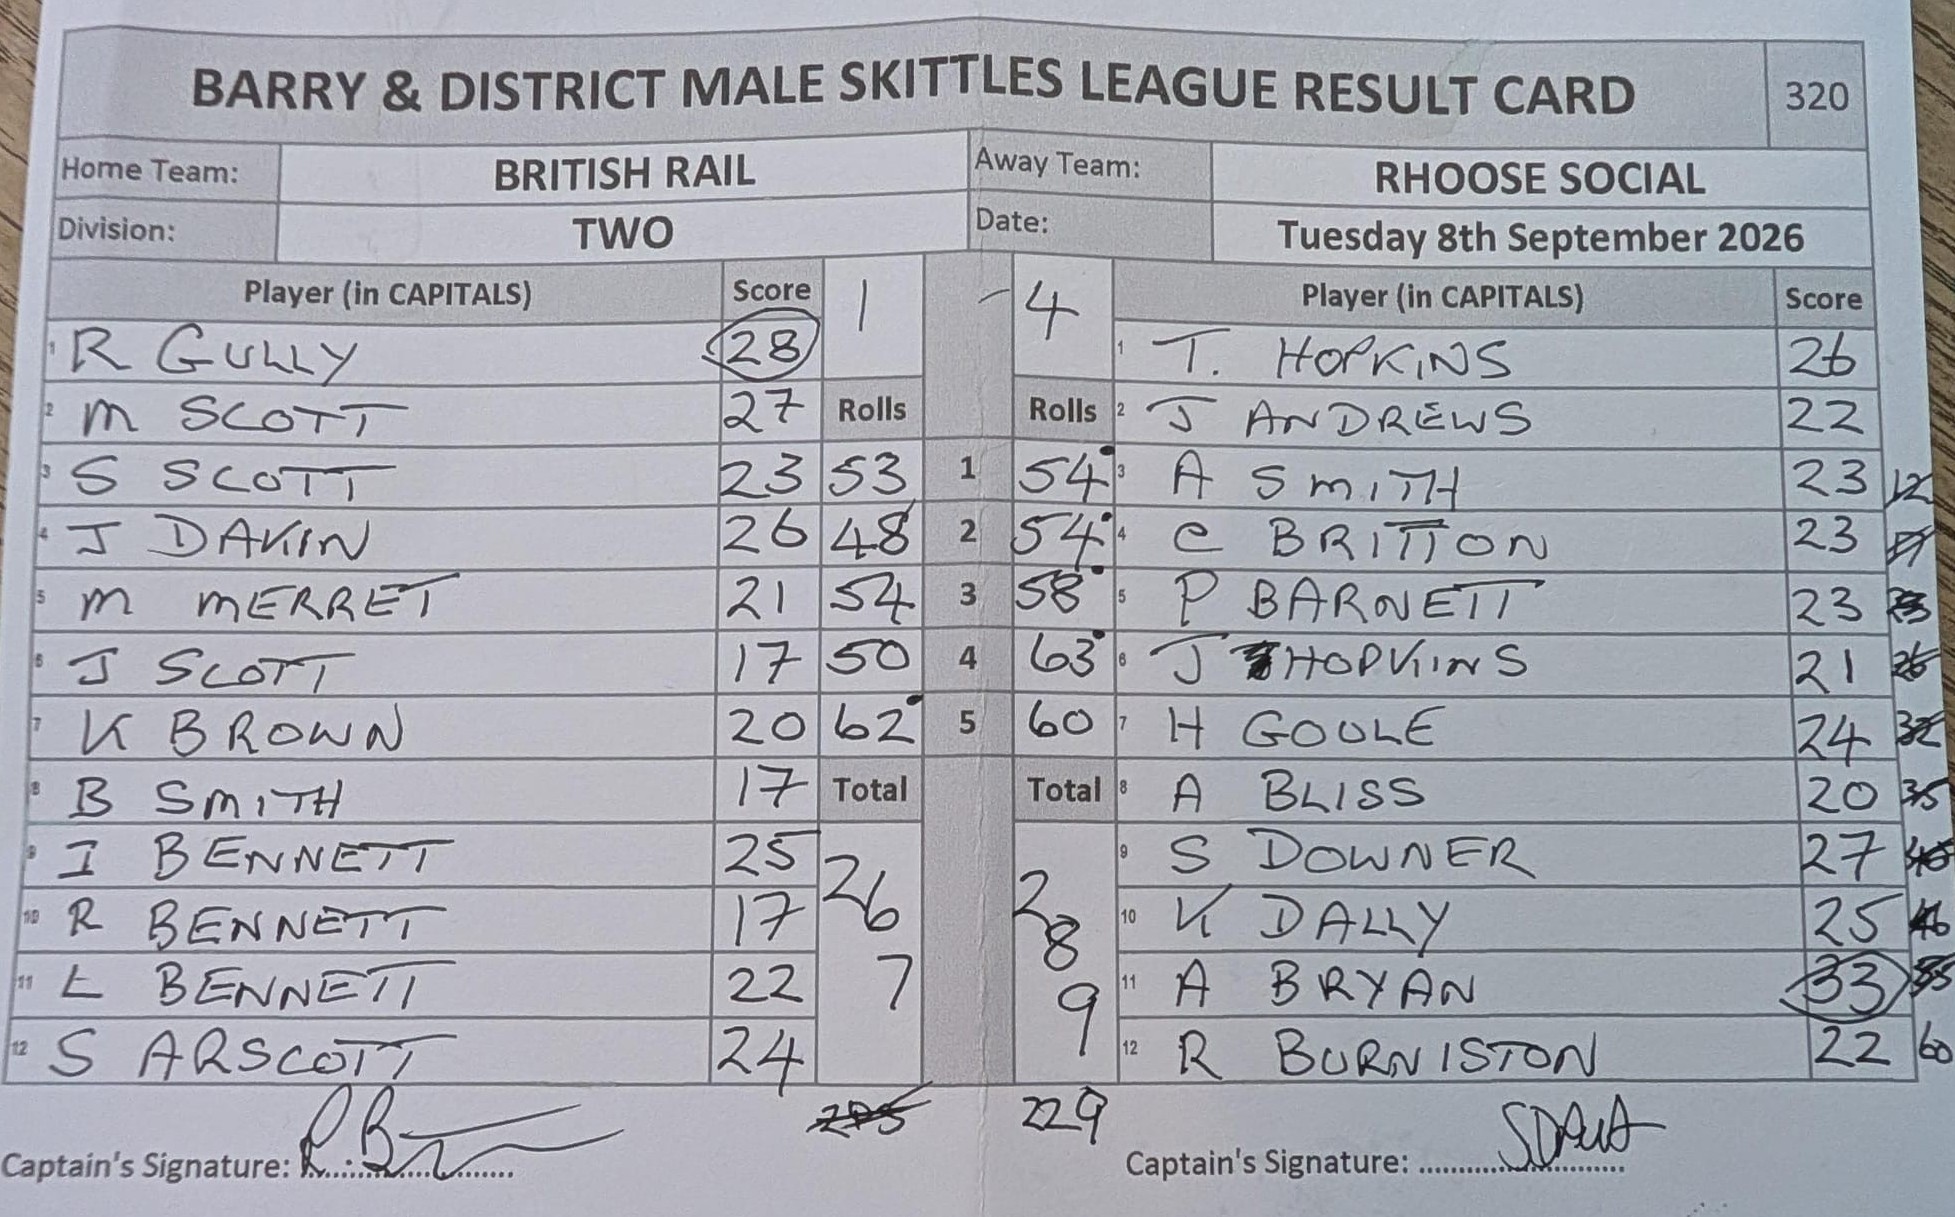 BARRY & DISTRICT MALE SKITTLES LEAGUE RESULT CARD 320
Home Team: BRITISH RAIL Away Team: RHOOSE SOCIAL
Division: TWO Date: Tuesday 8th September 2026
Player (in CAPITALS) Score 1 - 4 Player (in CAPITALS) Score
1 R GULLY 28 1 T. HOPKINS 26
2 M SCOTT 27 Rolls Rolls 2 J ANDREWS 22
3 S SCOTT 23 53 1 54 3 A SMITH 23 12
4 J DAKIN 26 48 2 54 4 C BRITTON 23
5 M MERRET 21 54 3 58 5 P BARNETT 23
6 J SCOTT 17 50 4 63 6 J HOPKINS 21 26
7 K BROWN 20 62 5 60 7 H GOULE 24 32
8 B SMITH 17 Total Total 8 A BLISS 20 35
9 I BENNETT 25 267 289 9 S DOWNER 27
10 R BENNETT 17 10 K DALLY 25 46
11 L BENNETT 22 11 A BRYAN 33 55
12 S ARSCOTT 24 12 R BURNISTON 22 60
229
Captain's Signature: Captain's Signature: